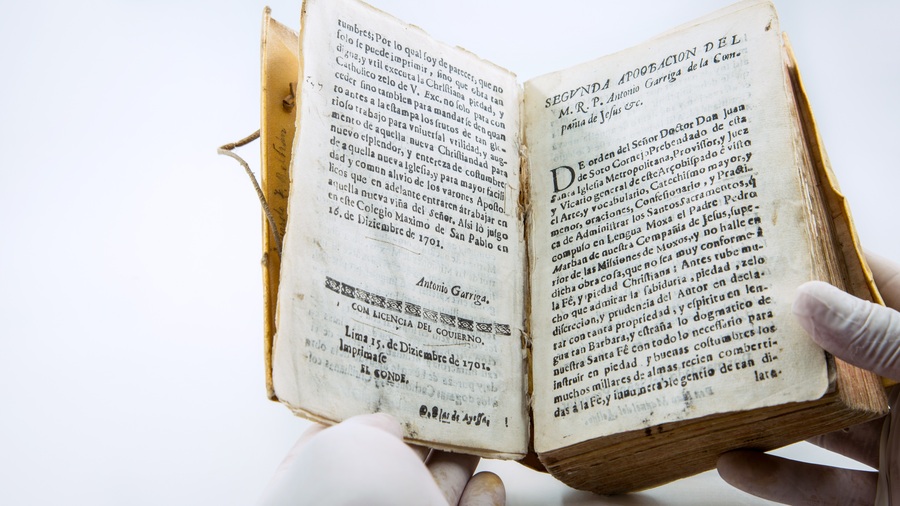 tumbres; Por lo qual soy de parecer, que no
solo se puede imprimir, sino que obra tan
digna, y vtil executa la Christiana piedad, y
Catholico zelo de V. Exc. no solo para con
ceder sino tambien para mandar se den quan
to antes a la estampa los frutos de tan glo
rioso trabajo para vniuersal vtilidad, y aug-
mento de aquella nueva Christiandad para
nuevo esplendor, y entereza de costumbres
de aquella nueva Iglesia, y para mayor facili
dad y comun alivio de los varones Aposto-
licos que en adelante entraren à trabajar en
aquella nueva viña del Señor. Asi lo juzgo
en este Colegio Maximo de San Pablo en
16. de Diziembre de 1701.
Antonio Garriga.
COM LICENCIA DEL GOUIERNO.
Lima 15. de Diziembre de 1701.
Imprimase
EL CONDE.
D. Blas de Ayessa,
SEGVNDA APOOBACION DEL
M. R. P. Antonio Garriga de la Com-
pañia de Jesus &c.
DE orden del Señor Doctor Don Juan
de Soto Cornejo Prebendado de esta
Santa Iglesia Metropolitana, Provissor, y Juez
y Vicario general de este Arçobispado è visto
el Arte, y vocabulario, Catechismo mayor, y
menor, oraciones, Confesionario, y Practi-
ca de Administrar los Santos Sacramentos, q̃
compuso en Lengua Moxa el Padre Pedro
Marban de nuestra Compañia de Jesus, supe-
rior de las Missiones de Moxos, y no halle en
dicha obra cosa, que no sea muy conforme à
la Fé, y piedad Christiana: Antes tube mu-
cho que admirar la sabiduria, piedad, zelo
discrecion, y prudencia del Autor en decla-
rar con tanta propriedad, y espiritu en len-
gua tan Barbara, y estraña lo dogmatico de
nuestra Santa Fé con todo lo necessario para
instruir en piedad y buenas costumbres los
muchos millares de almas recien comberti-
das à la Fé, y innumerable gentio de tan di-
lata-